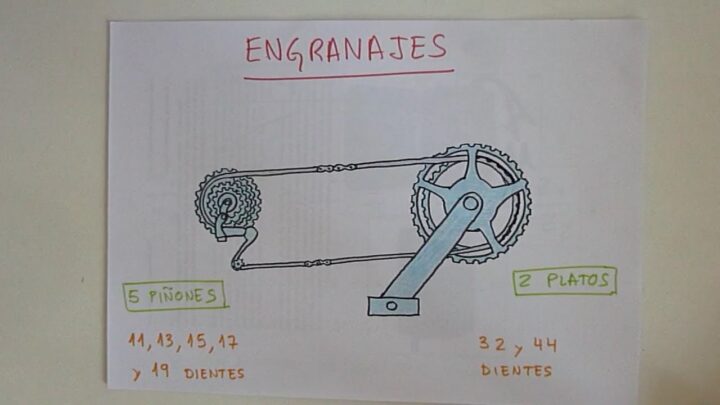 ENGRANAJES
5 PIÑONES
2 PLATOS
11, 13, 15, 17
y 19 DIENTES
32 y 44
DIENTES